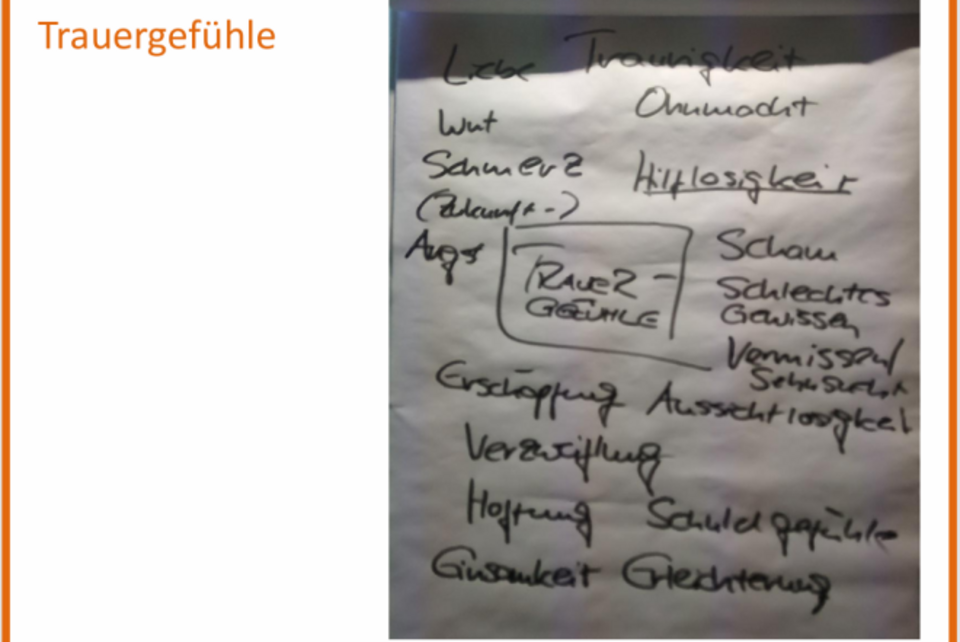 Trauergefühle
Liebe Traurigkeit
Ohnmacht
Wut
Schmerz
Hilflosigkeit
(Zukunfts-)
Angst
TRAUER-
GEFÜHLE
Scham
Schlechtes
Gewissen
Vermissen/
Sehnsucht
Erschöpfung Aussichtlosigkeit
Verzweiflung
Hoffnung Schuldgefühle
Einsamkeit Erleichterung